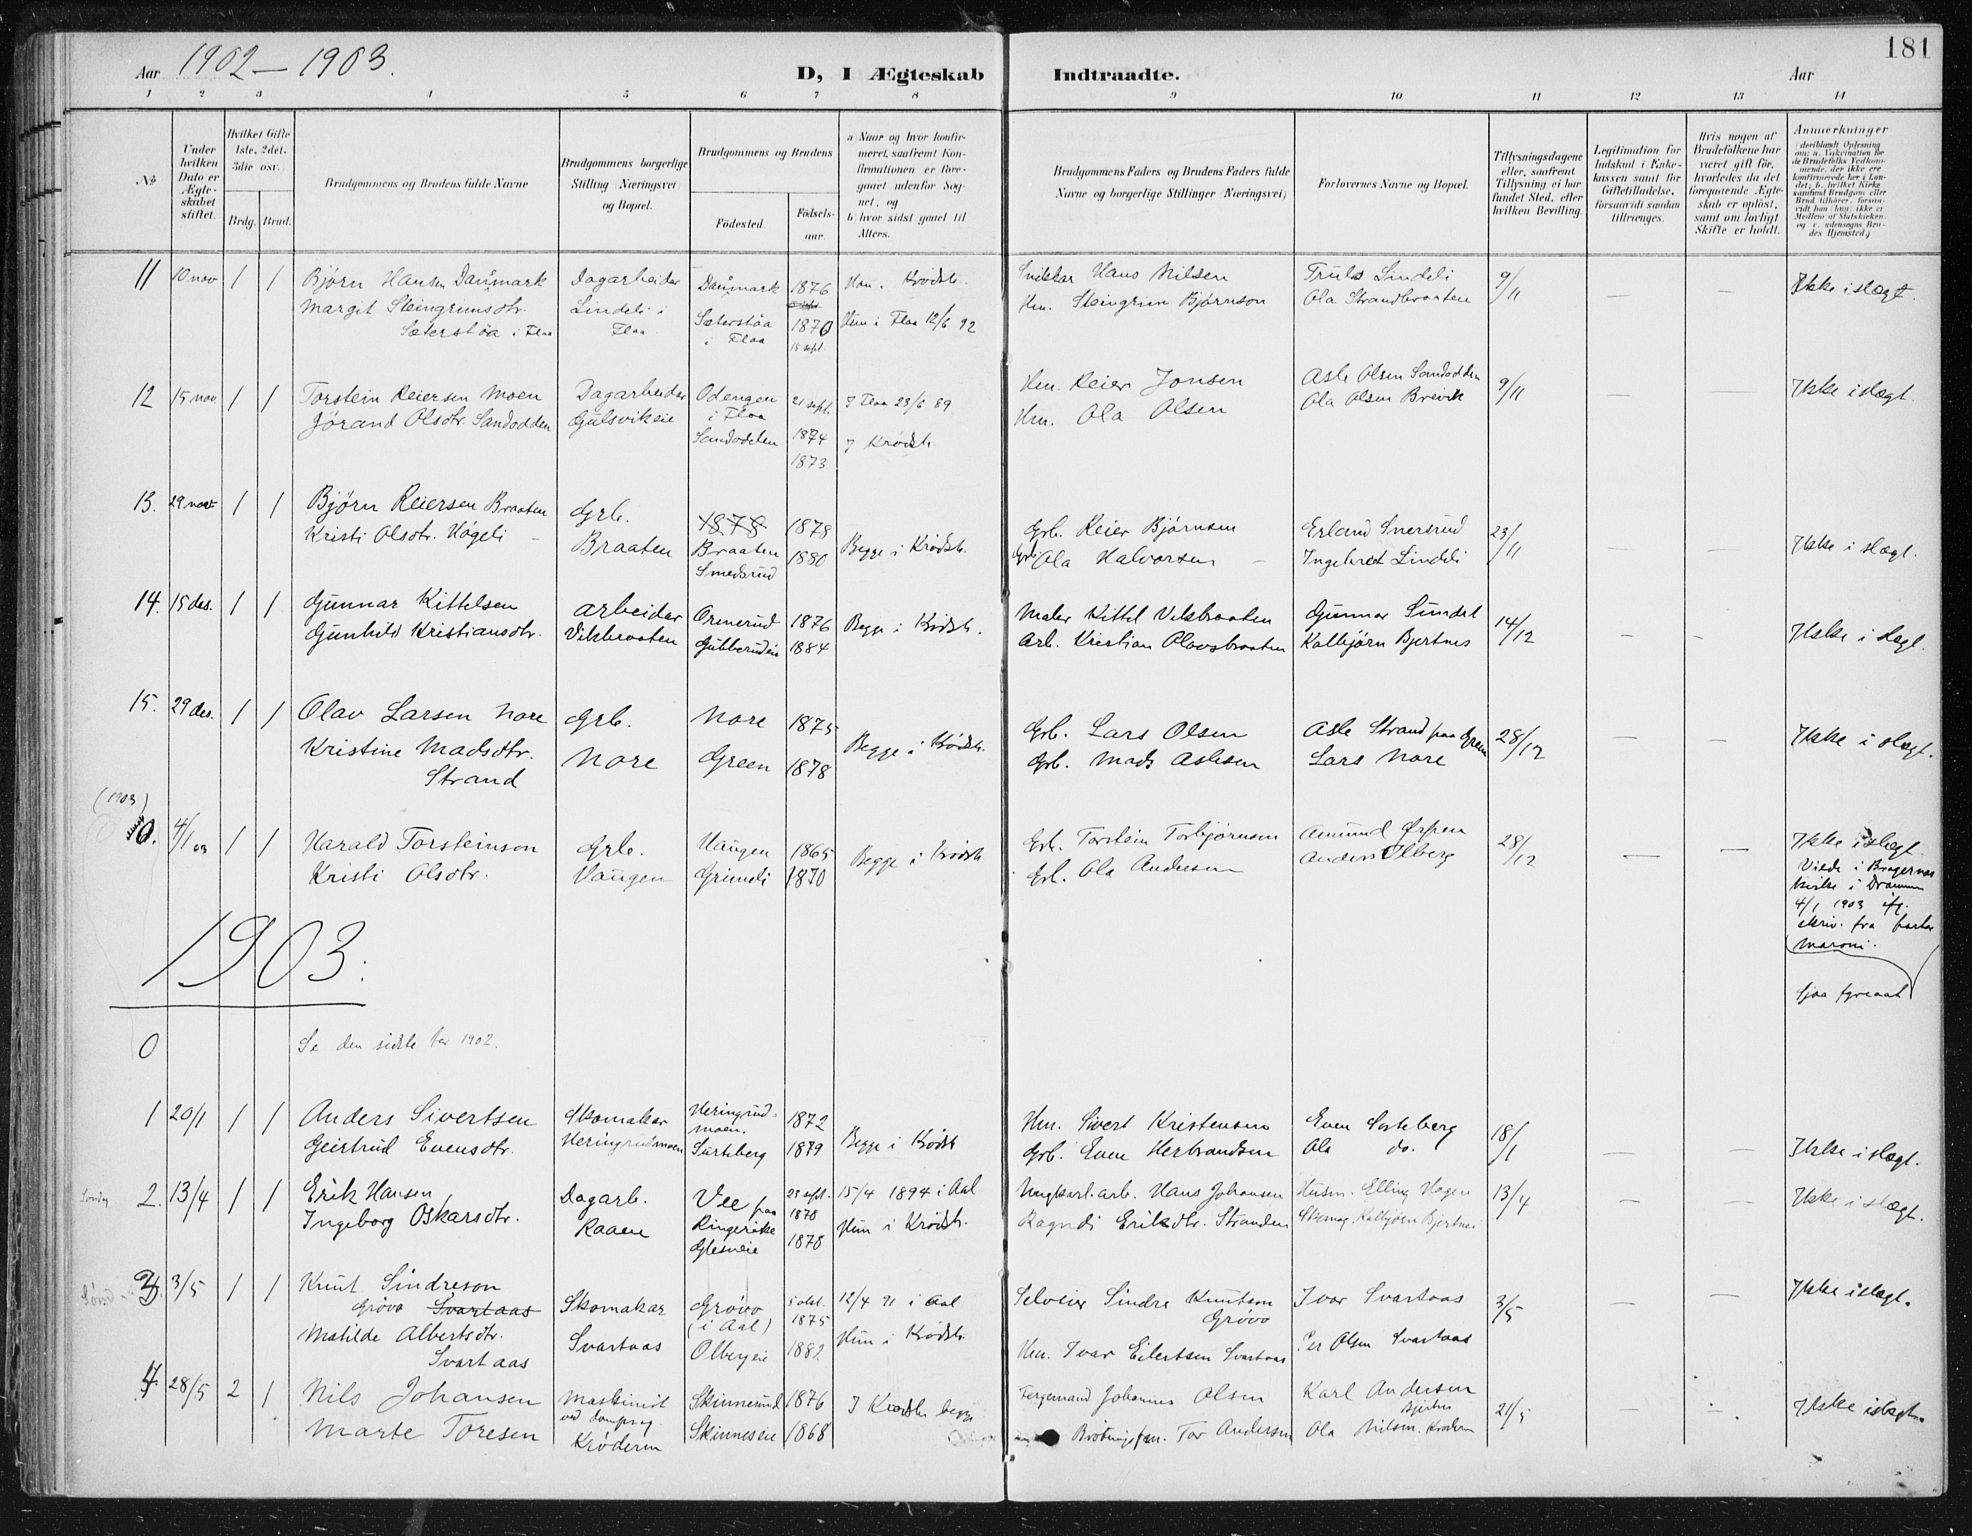 181
Aar 1902 – 1903.
D, I Ægteskab Indtraadte.
Aar
1 2 3 4 5 6 7 8 9 10 11 12 13 14
No
Under hvilken Dato er Ægteskabet stiftet.
Hvilket Gifte 1ste, 2det, 3die osv.
Brdg. Brud.
Brudgommens og Brudens fulde Navne
Brudgommens borgerlige Stilling (Næringsvei) og Bopæl.
Brudgommens og Brudens
Fødested. Fødselsaar.
a) Naar og hvor konfirmeret, saafremt Konfirmationen er foregaaet udenfor Sognet, og
b) hvor sidst gaaet til Alters.
Brudgommens Faders og Brudens Faders fulde Navne og borgerlige Stillinger (Næringsvei)
Forlovernes Navne og Bopæl.
Tillysningsdagene eller, saafremt Tillysning ei har fundet Sted, efter hvilken Bevilling.
Legitimation for Indskud i Enkekassen samt for Giftetilladelse, forsaavidt saadan tiltrænges.
Hvis nogen af Brudefolkene har været gift før, hvorledes da det foregaaende Ægteskab er opløst, samt om lovligt Skifte er holdt.
Anmerkninger
11 10 nov 1 1 Bjørn Hansen Danmark Dagarbeider Danmark 1876 Han. Krødsh. Snekker Hans Nilsen Truls Lindeli 9/11 — — Ikke i slægt.
Margit Steingrimsdtr. Lindeli i Sæterstøa 1870 Hun i Flaa 12/6 92 Hm. Steingrim Bjørnson Ola Strandbraaten
Sæterstøa i Flaa Flaa i Flaa 15 sept.
12 15 nov 1 1 Torstein Reiersen Moen Dagarbeider Odengen 21 sept. I Flaa 23/6 89 Hm. Reier Jonsen Asle Olsen Sandodden 9/11 — — Ikke i slægt.
Jørand Olsdtr. Sandodden Gulsvikeie i Flaa 1874 I Krødsh. Hm. Ola Olsen Ola Olsen Brevik
Sandodden 1873
13. 29 nov 1 1 Bjørn Reiersen Braaten Grb. 1878 1878 Begge i Krødsh. Grb. Reier Bjørnsen Erland Snersrud 23/11 — — Ikke i slægt.
Kristi Olsdtr. Høgeli Braaten Braaten 1880 Grb. Ola Halvorsen Ingebret Lindeli
Smedsrud
14. 15 des. 1 1 Gunnar Kittelsen Arbeider Ormerud 1876 Begge i Krødsh. Maler Kittil Vikbraaten Gunnar Sundet 14/12 — — Ikke i slægt.
Gunhild Kristiansdtr. Vikbraaten Gubberudeie 1884 Arb. Kristian Olavsbraaten Kolbjørn Bjertnes
15. 29 des. 1 1 Olav Larsen Nore Grb. Nore 1875 Begge i Krødsh. Grb. Lars Olsen Asle Strand paa Green 28/12 — — Ikke i slægt.
Kristine Madsdtr. Nore Green 1878 Grb. Mads Aslesen Lars Nore
Strand
(1903)
0. 4/1 03 1 1 Harald Torsteinson Grb. Haugen 1865 Begge i Krødsh Grb. Torstein Torbjørnson Amund Ørpen 28/12 — — Ikke i slægt.
Kristi Olsdtr. Haugen Grimeli 1870 Grb. Ola Andersen Anders Olberg
Viede i Bragernes kirke i Drammen 4/1 1903
skriv. fra
1903:
0 Se den sidste for 1902.
1 20/1 1 1 Anders Sivertsen Skomakar Heringrudmoen. 1872 Begge i Krødsh Hm. Sivert Kristensen Even Sorteberg 18/1 — — Ikke i slægt.
Geirtrud Evensdtr. Heringrudmoen Surteberg 1879 Grb. Even Herbrandsen Ola do.
2. 13/4 1 1 Erik Hansen Dagarb. Vee paa Ringerike 28 sept. 1878 15/4 1894 i Aal Ungkarl. arb. Hans Johansen Husm. Elling Hagen 13/4 — — Ikke i slægt.
Ingeborg Oskarsdtr. Raaen Glesneie 1878 Hun i Krødsh. Ragndi Eriksdtr. Stranden Skomag. Kolbjørn Bjertnes
3. 3/5 1 1 Knut Sindreson Skomakar Grøvo 5 okt. 1875 12/4 91 i Aal Selveier Sindre Knutson Grøvo Ivar Svartaas 3/5 — — Ikke i slægt.
Grøvo Svartaas (i Aal)
Matilde Albertsdtr. Svartaas Olbergeie 1882 Hun i Krødsh. Hm. Ivar Eilertsen Svartaas Per Olsen Svartaas
Svartaas
4 28/5 2 1 Nils Johansen Maskinist Skinnesrud 1876 I Krødsh begge Fergemand Johannes Olsen Karl Andersen Bjertnes 21/5 — Ikke i slægt.
Marte Toresen ved dampsag Krøderen Skinneseie 1868 Tor Andersen Ola Nilsen. Krøderen